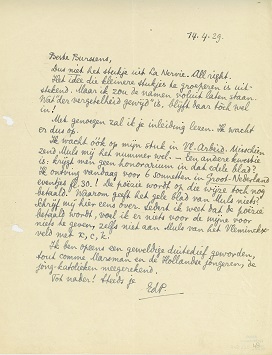 14.4.29.
Beste Burssens,
Dus niet het stukje uit La Nervie. All right.
Het idee die kleinere stukjes te groeperen is uit-
stekend. Maar ik zou de namen voluit laten staan.
Wat der vergetelheid gewijd is, blijft daar toch wel
in!
Met genoegen zal ik je inleiding lezen. Ik wacht
er dus op.
Ik wacht oòk op mijn stuk in Vl. Arbeid. Misschien
zend Muls mij het nummer wel. – Een andere kwestie
is: krijgt men geen honorarium in dat edele blad?
Ik ontving vandaag voor 6 sonnetten in Groot-Nederland
eventjes fl. 30.! De poëzie wordt op die wijze toch nog
betaald! Waarom geeft het gele blad van Muls niets?
Schrijf mij hier eens over. Als ik weet dat de poëzie
betaald wordt, voel ik er niets voor de mijne voor
niets te geven, zelfs niet aan Muls van het Vleminckx-
veld met x, c, k.
Ik ben opeens een geweldige duitedief geworden,
tout comme Marsman en de Hollandse jongeren, de
jong-katholieken meegerekend.
Tot nader! Steeds je
EdP